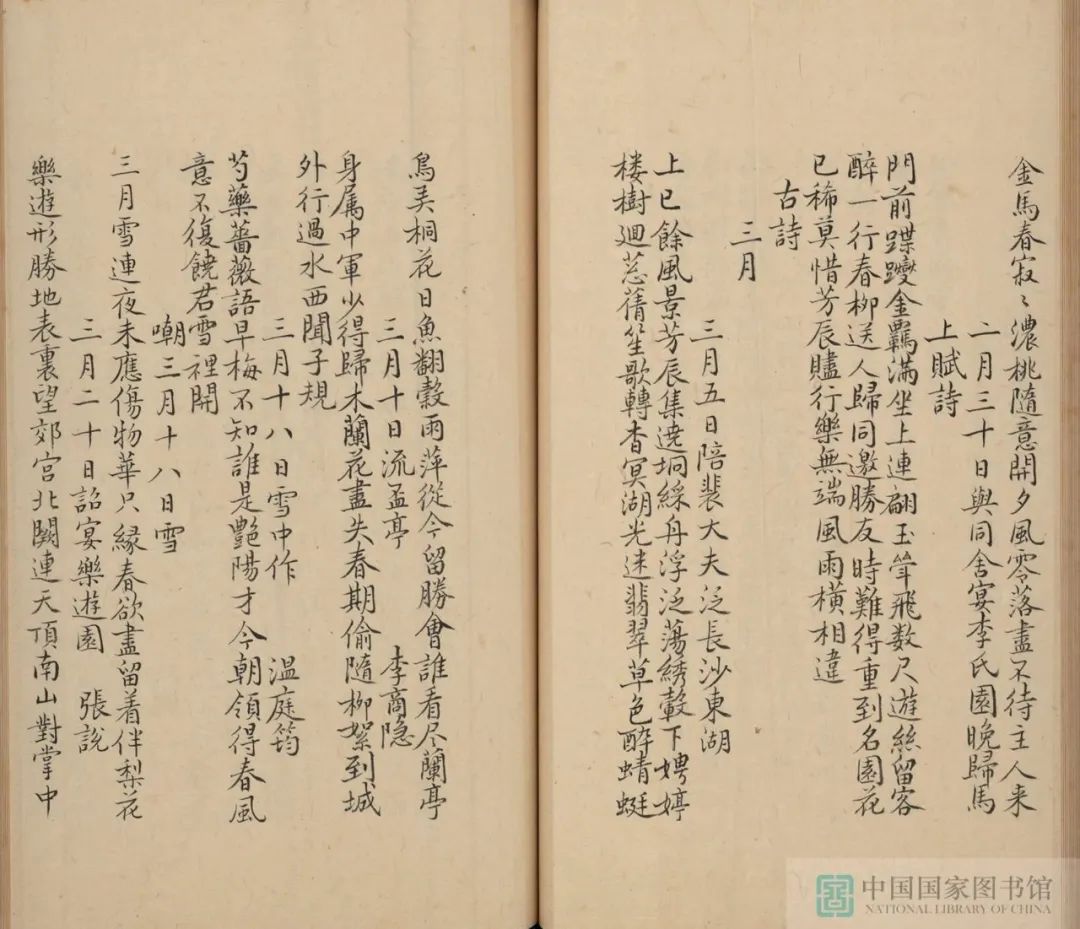 金馬春寂〻濃桃隨意開夕風零落盡不待主人来
二月三十日與同舍宴李氏園晩歸馬
上賦詩
門前蹀躞金羈滿坐上連翩玉斚飛数尺遊絲留客
醉一行春柳送人歸同邀勝友時難得重到名園花
已稀莫惜芳辰贐行樂無端風雨橫相違
古詩
三月
三月五日陪裴大夫泛長沙東湖
上巳餘風景芳辰集遶坰綵舟浮泛蕩綉轂下娉婷
楼樹廻葱蒨笙歌轉杳冥湖光迷翡翠草色醉蜻蜓
鳥弄桐花日魚翻縠雨萍從今留勝會誰看尽蘭亭
三月十日流盃亭 李商隐
身属中軍少得歸木蘭花盡失春期偷隨柳絮到城
外行過水西聞子規
三月十八日雪中作 温庭筠
芍藥薔薇語早梅不知誰是艷陽才今朝領得春風
意不復饒君雪裡開
嘲三月十八日雪
三月雪連夜未應傷物華只緣春欲盡留着伴梨花
三月二十日詔宴樂遊園 張說
樂遊形勝地表裏望郊宮北闕連天頂南山對掌中
中国国家图书馆
NATIONAL LIBRARY OF CHINA